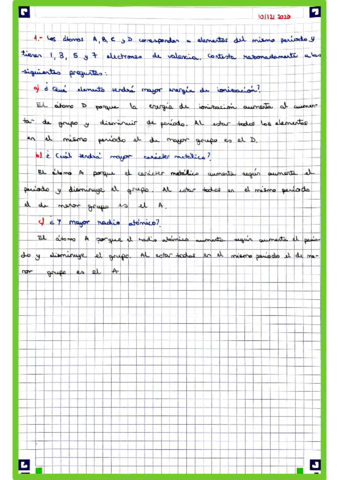 10/12/2020
1.- Los átomos A, B, C y D corresponden a elementos del mismo periodo y
tienen 1, 3, 5 y 7 electrones de valencia. Contesta razonadamente a las
siguientes preguntas:
a) ¿Qué elemento tendrá mayor energía de ionización?
El átomo D porque la energía de ionización aumenta al aumen-
tar de grupo y disminuir de periodo. Al estar todos los elementos
en el mismo periodo el de mayor grupo es el D.
b) ¿Cuál tendrá mayor carácter metálico?
El átomo A porque el carácter metálico aumenta según aumenta el
periodo y disminuye el grupo. Al estar todos en el mismo periodo
el de menor grupo es el A.
c) ¿Y mayor radio atómico?
El átomo A porque el radio atómico aumenta según aumenta el perio-
do y disminuye el grupo. Al estar todos en el mismo periodo el de me-
nor grupo es el A